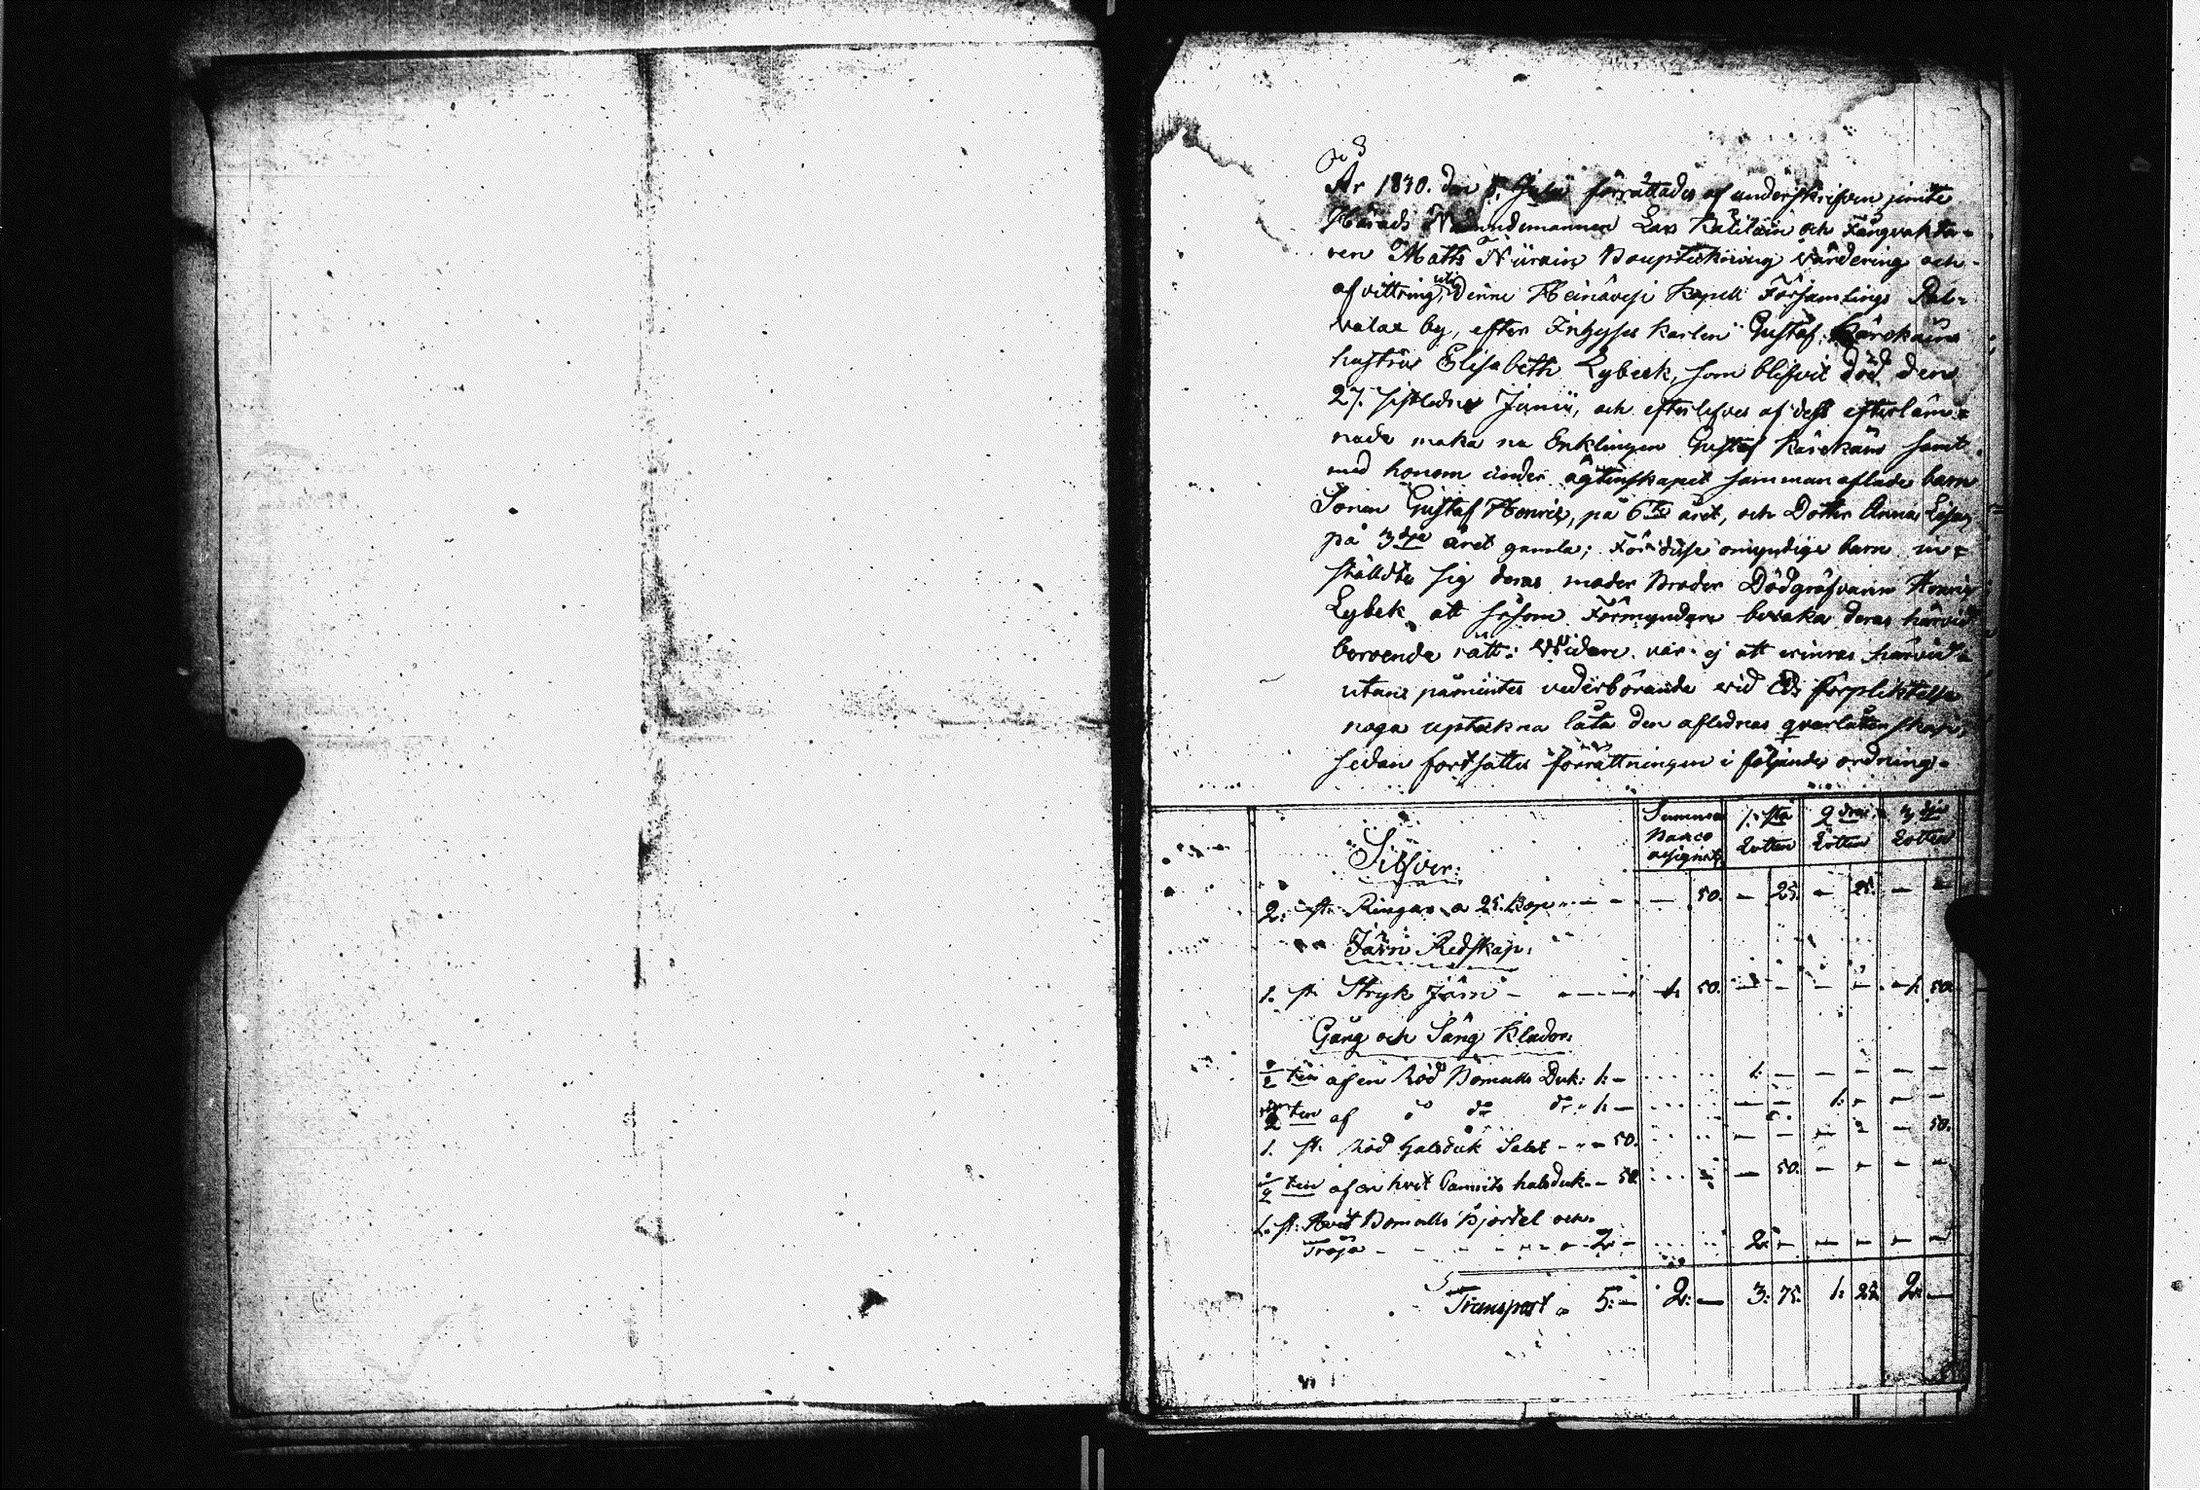 År 1830. den 8. Julii förrättades af underskrifven jemte
Härads Nämndemannen Lars och Fångvakta-
ren Matts Bouptekning Värdering och
afvittring uti denne Heinävesi Kapell Församlings Pal-
valax by, efter Inhyses Karlen Gustaf Kärckäins
hustru Elisabeth Lybeck, som blifvit död den
27. sistledne Junii, och efterlefves af dess efterläm-
nade maka nu Enklingen Gustaf Kärckäin samt
med honom under ägtenskapet samman aflade barn
Sonen Gustaf Henric, på 6te året, och Dotter Anna Lisa,
på 3dje året gamla; För desse omyndige barn in-
ställdte sig deras moder Broder Dödgräfvaren Henric
Lybek, att såsom Förmyndare bevaka deras härvid
beroende rätt: Widare var ej att erinras härvid
utan påmintes vederbörande vid Eds förpliktelse
noga uptekna låta den aflednas qvarlåtenskap,
sedan fortsattes förrättningen i följande ordning.
Summa Banco assignat: 1:sta Lotten 2dra Lotten 3dje Lotten
Silfver:
2: st: Ringar a 25. Kop - - - — 50. — 25. — 25. — —
Järn Redskap:
1. st Stryk Järn - - - - - 1: 50. — — — — 1: 50.
Gång och Säng Kläder:
1/2 ten af en Röd Bomulls Duk: 1: — 1: — — — — —
1/2 ten af do do do 1: — — — 1: — — —
1. st. Röd halsduk Salet - - - 50. — — — — — 50.
1/2 ten af en hvit halsduk - - 50. — 50. — — — —
1. st: Hvit Bomulls Kjortel och
Tröja - - - - - - 2: — 2: — — — — —
Transport 5: — 2: — 3: 75. 1: 25. 2: —